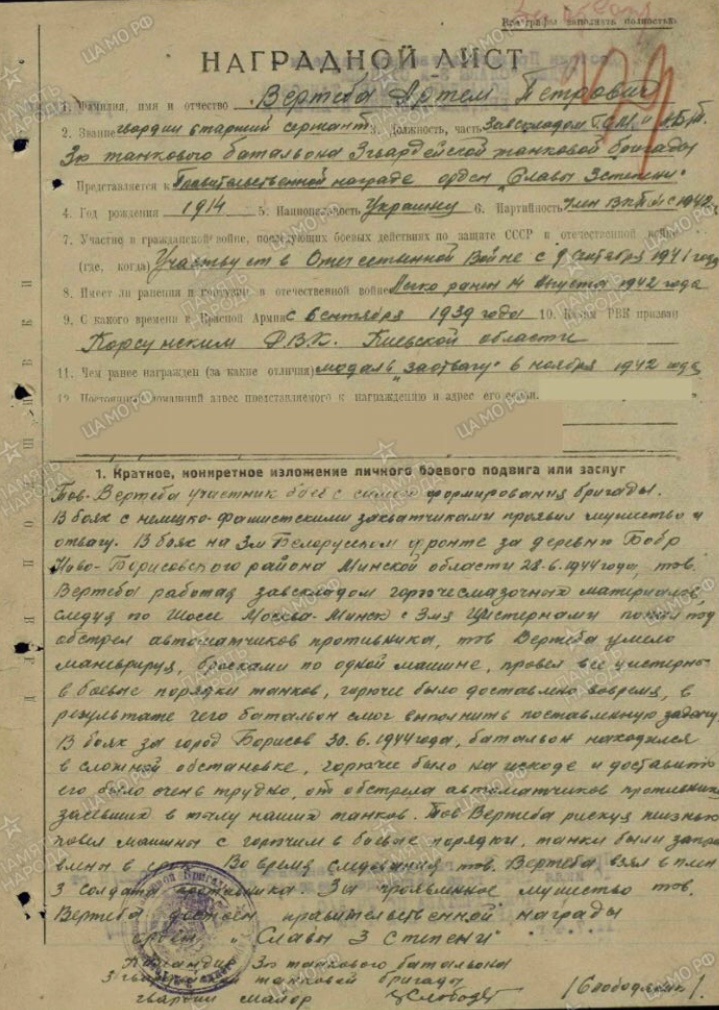 Все графы заполнять полностью
НАГРАДНОЙ ЛИСТ
1. Фамилия, имя и отчество Вертеба Артем Петрович
2. Звание гвардии старший сержант 3. Должность, часть Завскладом
3го танкового батальона 3 гвардейской танковой бригады
Представляется к Правительственной награде орден "Славы 3 степени"
4. Год рождения 1914 5. Национальность Украинец 6. Партийность член ВКП с 1942
7. Участие в гражданской войне, последующих боевых действиях по защите СССР и отечественной войне
(где, когда) Участвует в Отечественной Войне с 9 октября 1941 года
8. Имеет ли ранения и контузии в отечественной войне Легко ранен 14 Августа 1942 года
9. С какого времени в Красной Армии с 6 сентября 1939 года 10. Каким РВК призван
Корсунским РВК Киевской области
11. Чем ранее награжден (за какие отличия) медаль "за отвагу" 6 ноября 1942 года
12. Постоянный домашний адрес представляемого к награждению и адрес его семьи.
1. Краткое, конкретное изложение личного боевого подвига или заслуг
Тов. Вертеба участник боев с самого формирования бригады.
В боях с немецко-фашистскими захватчиками проявил мужество и
отвагу. В боях на 3м Белорусском фронте за деревню Бобр
Ново-Борисовского района Минской области 28.6.1944 года, тов.
Вертеба работая завскладом горючесмазочных материалов
следуя по шоссе Москва-Минск с 3мя цистернами попал под
обстрел автоматчиков противника, тов Вертеба умело
маневрируя, бросками по одной машине, провел все цистерны
в боевые порядки танков, горючее было доставлено вовремя, в
результате чего батальон смог выполнить поставленную задачу.
В боях за город Борисов 30.6.1944 года, батальон находился
в сложной обстановке, горючее было на исходе и доставить
его было очень трудно, от обстрела автоматчиков противника
засевших в тылу наших танков. Тов Вертеба рискуя жизнью
повел машины с горючим в боевые порядки, танки были запра
влены в срок. Во время следования тов. Вертеба взял в плен
3 солдата противника. За проявленное мужество тов.
Вертеба достоен правительственной награды
орден "Славы 3 степени"
Командир 3го танкового батальона
3 гвардейской танковой бригады
гвардии майор
ЦАМО РФ
ПАМЯТЬ НАРОДА